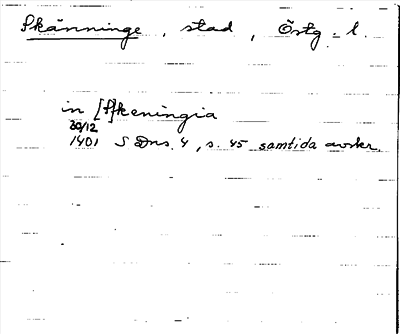 Skänninge, stad, Östg. l.
in [S]keningia
30/12
1401 SDns. 4, s. 45 samtida avskr.